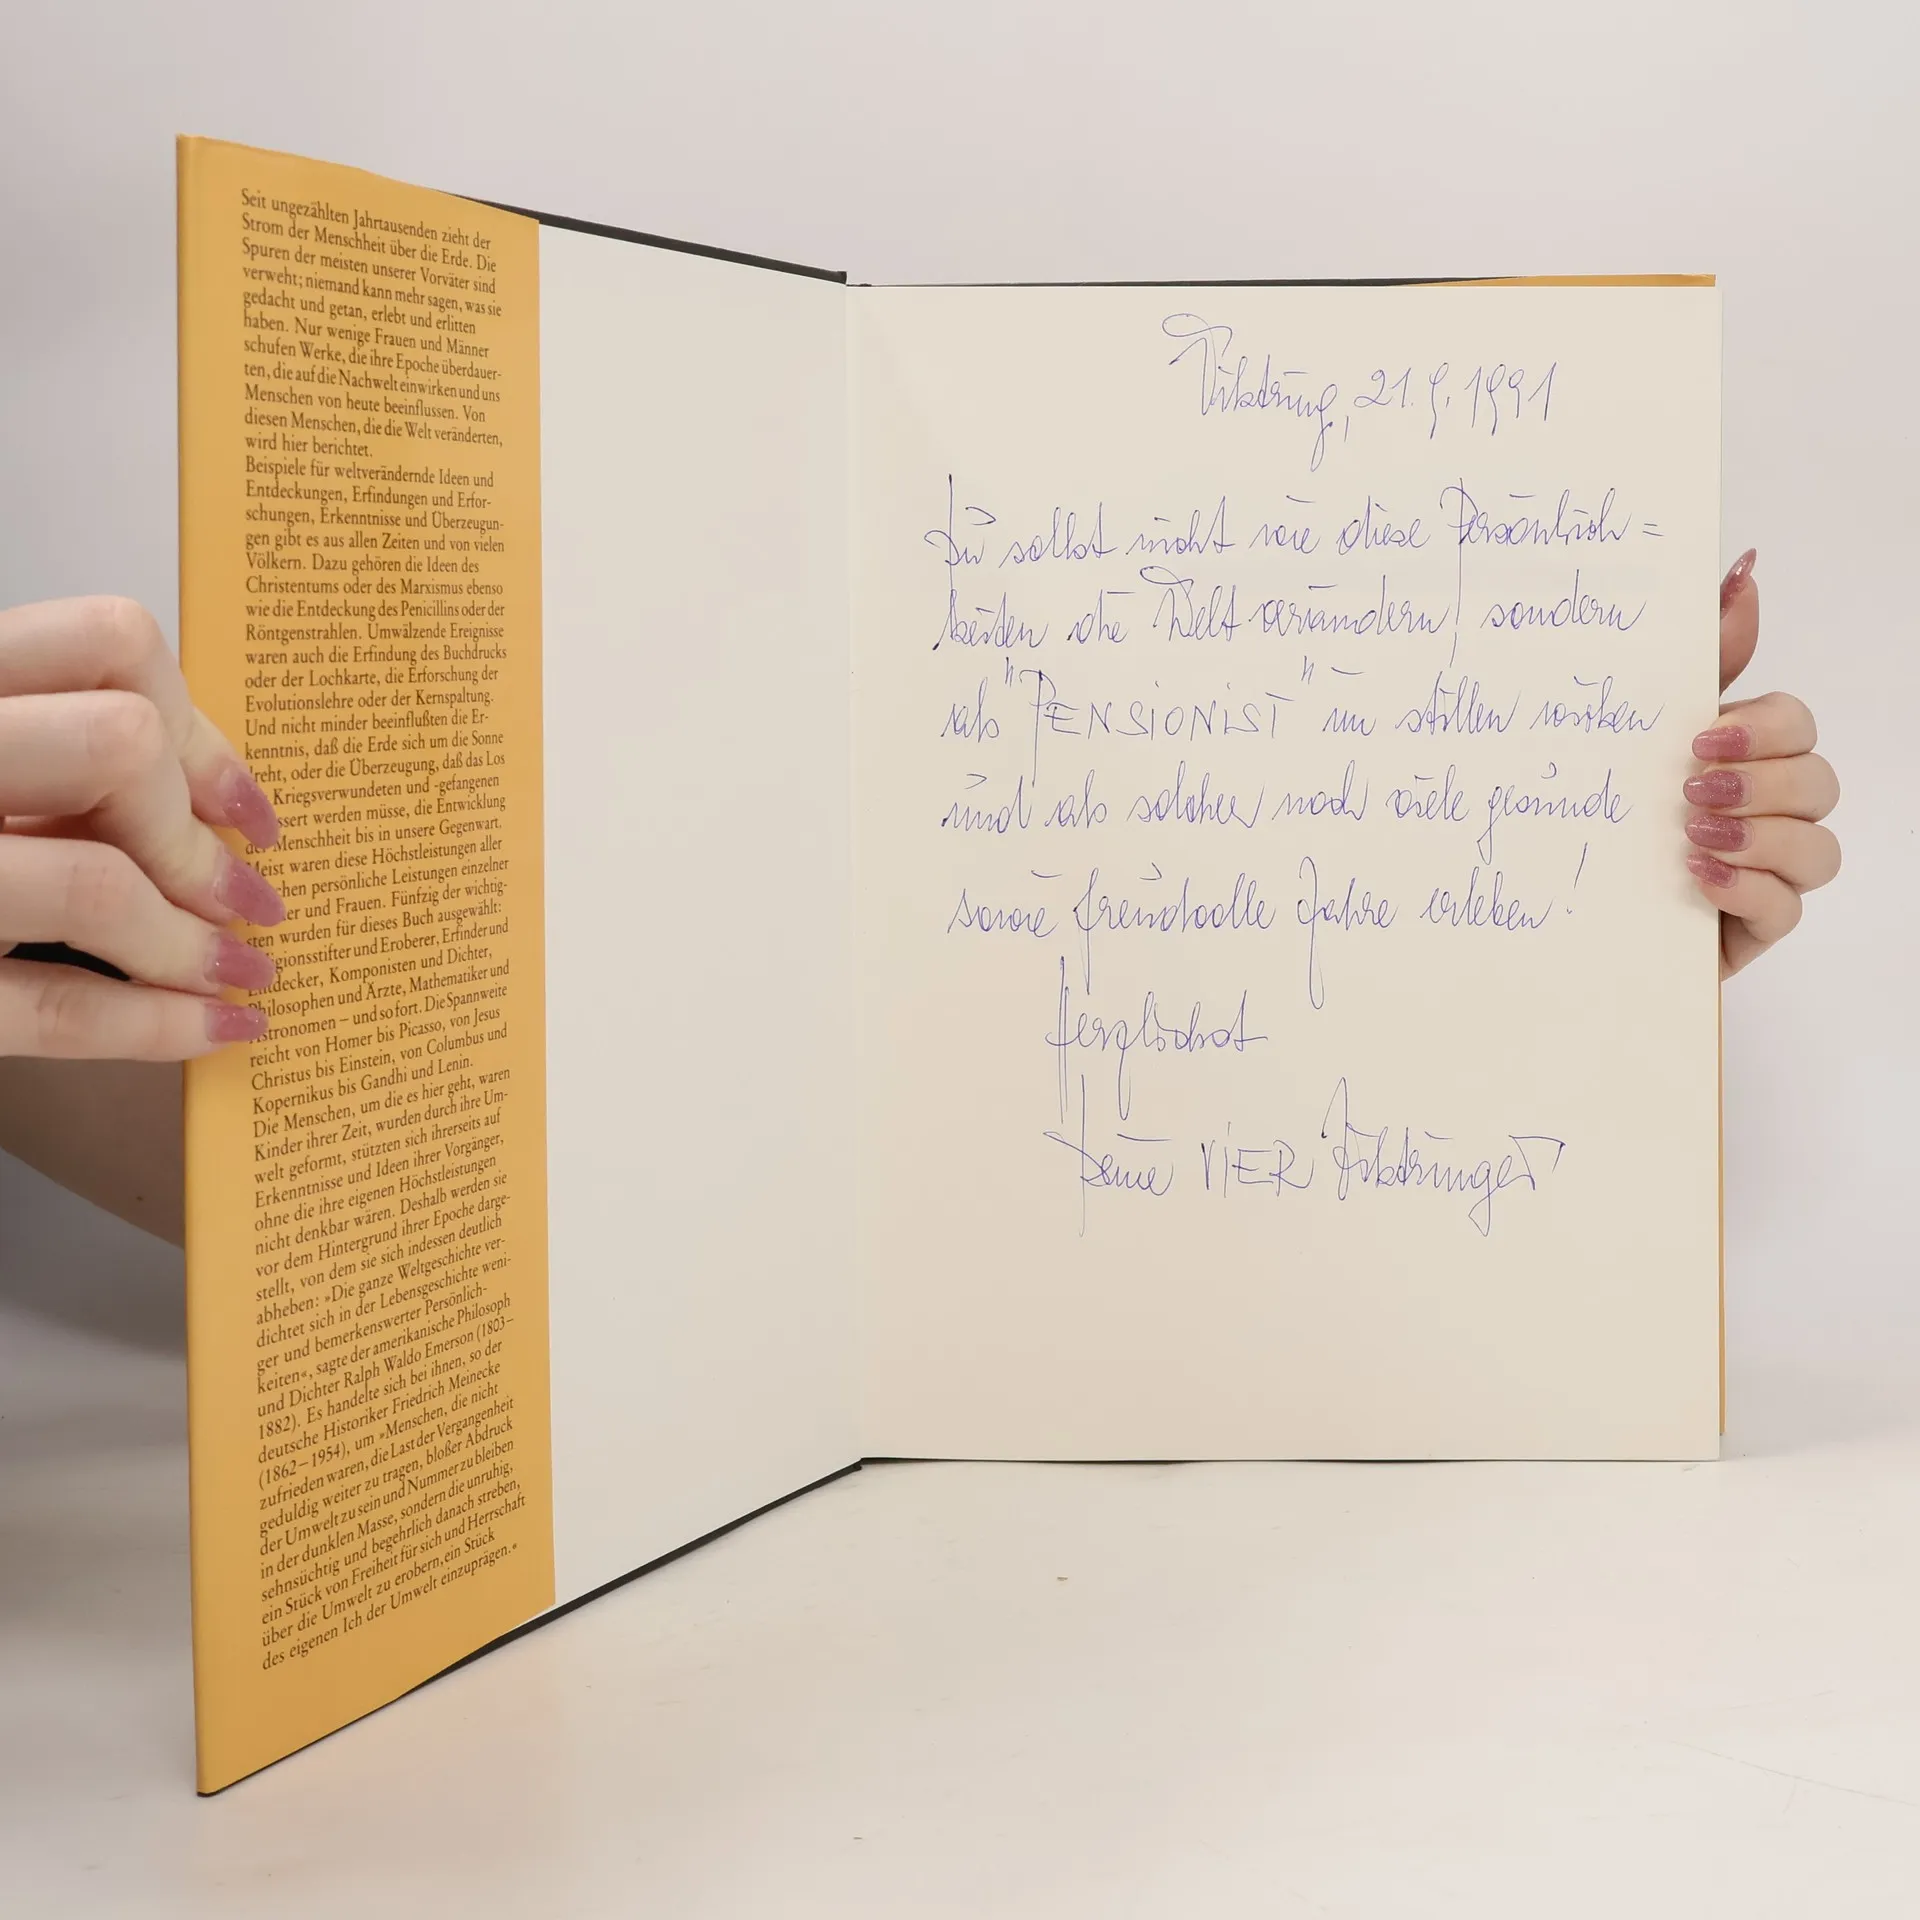 Seit ungezählten Jahrtausenden zieht der
Strom der Menschheit über die Erde. Die
Spuren der meisten unserer Vorväter sind
verweht; niemand kann mehr sagen, was sie
gedacht und getan, erlebt und erlitten
haben. Nur wenige Frauen und Männer
schufen Werke, die ihre Epoche überdauer-
ten, die auf die Nachwelt einwirken und uns
Menschen von heute beeinflussen. Von
diesen Menschen, die die Welt veränderten,
wird hier berichtet.
Beispiele für weltverändernde Ideen und
Entdeckungen, Erfindungen und Erfor-
schungen, Erkenntnisse und Überzeugun-
gen gibt es aus allen Zeiten und von vielen
Völkern. Dazu gehören die Ideen des
Christentums oder des Marxismus ebenso
wie die Entdeckung des Penicillins oder der
Röntgenstrahlen. Umwälzende Ereignisse
waren auch die Erfindung des Buchdrucks
oder der Lochkarte, die Erforschung der
Evolutionslehre oder der Kernspaltung.
Und nicht minder beeinflußten die Er-
kenntnis, daß die Erde sich um die Sonne
dreht, oder die Überzeugung, daß das Los
Kriegsverwundeten und -gefangenen
ssert werden müsse, die Entwicklung
der Menschheit bis in unsere Gegenwart.
Meist waren diese Höchstleistungen aller
chen persönliche Leistungen einzelner
er und Frauen. Fünfzig der wichtig-
sten wurden für dieses Buch ausgewählt:
gionsstifter und Eroberer, Erfinder und
Entdecker, Komponisten und Dichter,
Philosophen und Ärzte, Mathematiker und
Astronomen – und so fort. Die Spannweite
reicht von Homer bis Picasso, von Jesus
Christus bis Einstein, von Columbus und
Kopernikus bis Gandhi und Lenin.
Die Menschen, um die es hier geht, waren
Kinder ihrer Zeit, wurden durch ihre Um-
welt geformt, stützten sich ihrerseits auf
Erkenntnisse und Ideen ihrer Vorgänger,
ohne die ihre eigenen Höchstleistungen
nicht denkbar wären. Deshalb werden sie
vor dem Hintergrund ihrer Epoche darge-
stellt, von dem sie sich indessen deutlich
abheben: »Die ganze Weltgeschichte ver-
dichtet sich in der Lebensgeschichte weni-
ger und bemerkenswerter Persönlich-
keiten«, sagte der amerikanische Philosoph
und Dichter Ralph Waldo Emerson (1803–
1882). Es handelte sich bei ihnen, so der
deutsche Historiker Friedrich Meinecke
(1862–1954), um »Menschen, die nicht
zufrieden waren, die Last der Vergangenheit
geduldig weiter zu tragen, bloßer Abdruck
der Umwelt zu sein und Nummer zu bleiben
in der dunklen Masse, sondern die unruhig,
sehnsüchtig und begehrlich danach streben,
ein Stück von Freiheit für sich und Herrschaft
über die Umwelt zu erobern, ein Stück
des eigenen Ich der Umwelt einzuprägen.«
Viktring, 21.9.1991
Du sollst nicht wie diese Persönlich=
keiten die Welt verändern, sondern
als "PENSIONIST" im stillen wirken
und als solcher noch viele gesunde
sowie freudvolle Jahre erleben!
Herzlichst
Deine VIER Viktringer